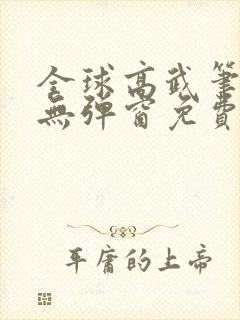 全球高武筆
無彈窗免費
平庸的上帝